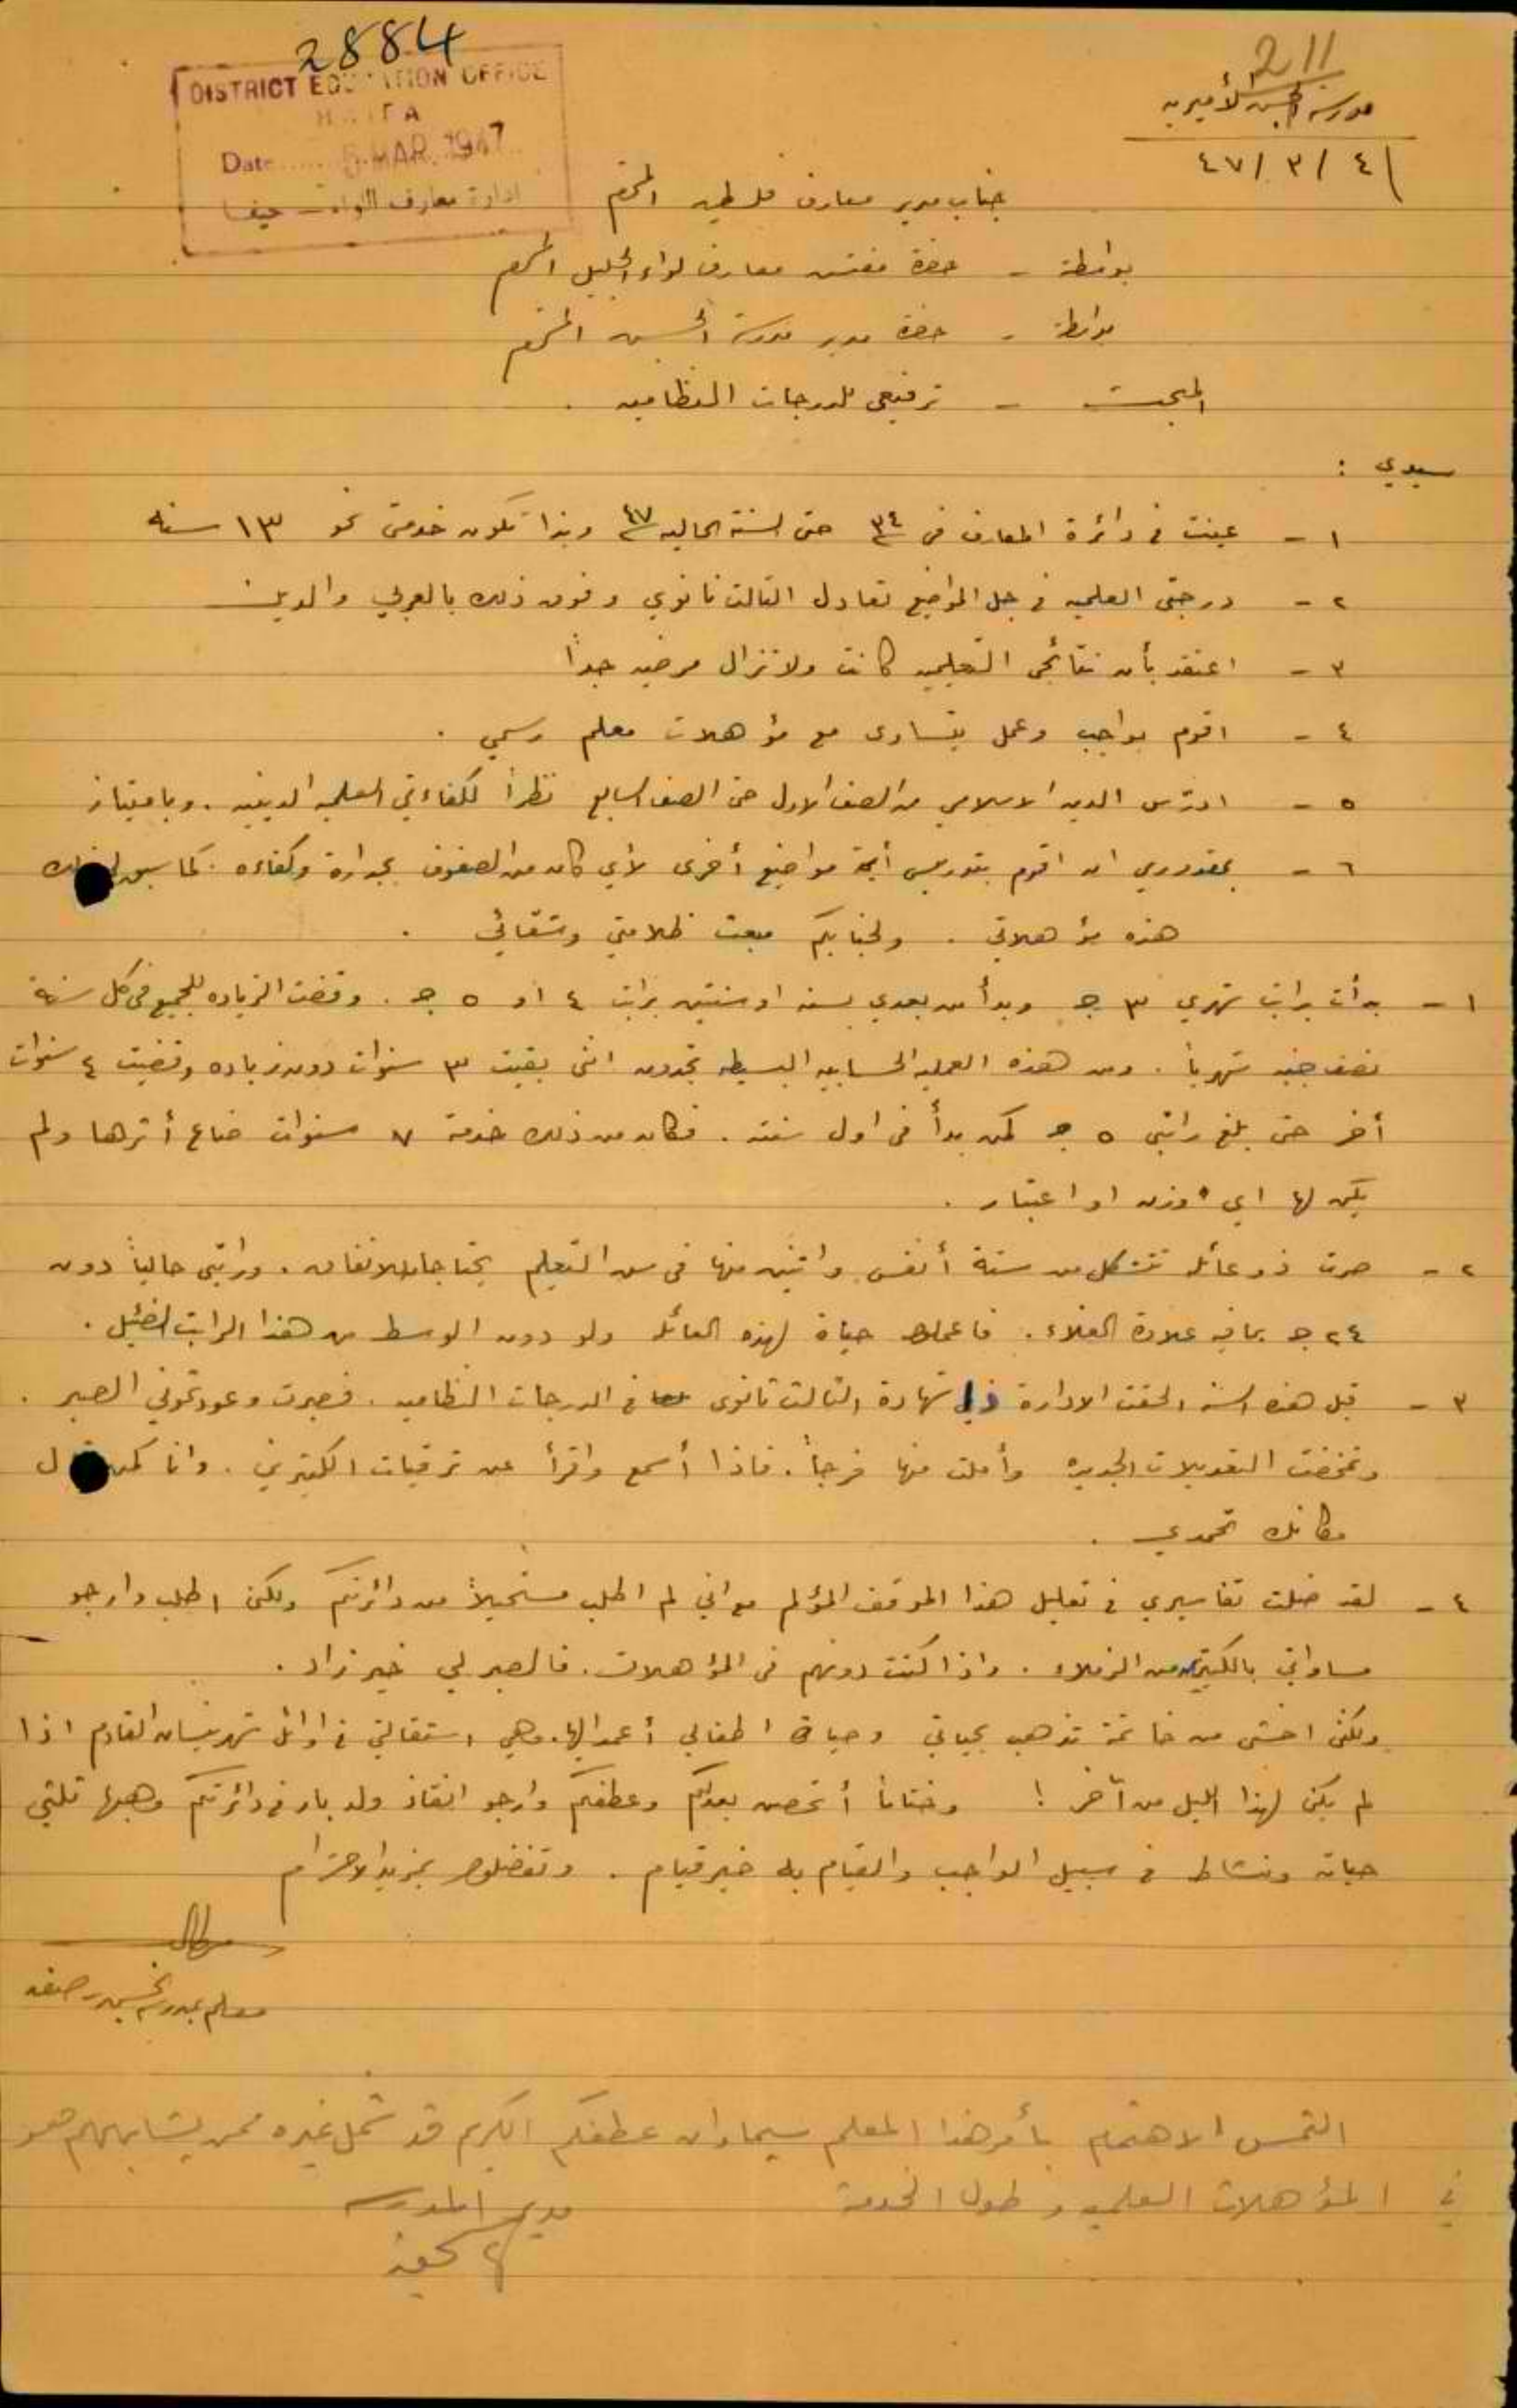 2884
DISTRICT EDUCATION OFFICE
HAIFA
Date ..... 5 MAR. 1947
ادارة معارف اللواء - حيفا
211
مدرسة الحسن الأميرية
٤ / ٣ / ٤٧
جناب مدير معارف فلسطين المحترم
بواسطة - حضرة مفتش معارف لواء الجليل المحترم
بواسطة - حضرة مدير مدرسة الحسن المحترم
المبحث - ترفيعي للدرجات النظاميه .
سيدي :
١ - عينت في دائرة المعارف في ٣٤ حتى السنة الحاليه ٤٧ وبذا تكون خدمتي نحو ١٣ سنه
٢ - درجتي العلميه في جل المواضيع تعادل الثالث ثانوي وفوق ذلك بالعربي والدين
٣ - اعتقد بأن نتائجي التعليميه كانت ولا تزال مرضيه جداً
٤ - اقوم بواجب وعمل يتساوى مع مؤهلات معلم رسمي .
٥ - ادرّس الدين الاسلامي من الصف الاول حتى الصف السابع نظراً لكفاءتي العلميه الدينيه . وبامتياز
٦ - بمقدوري ان اقوم بتدريس أية مواضيع أخرى لأي كان من الصفوف بجدارة وكفاءه . كما سبق
هذه مؤهلاتي . ولجنابكم مبعث ظلامتي وشقائي .
١ - بدأت براتب شهري ٣ ج وبدأ من بعدي بسنه او سنتين براتب ٤ او ٥ ج . وقضت الزياده للجميع في كل سنة
نصف جنيه شهرياً . ومن هذه العمليه الحسابيه البسيطه تجدون انني بقيت ٣ سنوات دون زياده وقضيت ٤ سنوات
أخر حتى بلغ راتبي ٥ ج كمن بدأ في اول سنته . فكان من ذلك خدمة ٧ سنوات ضاع أثرها ولم
يكن لها اي وزن او اعتبار .
٢ - صرت ذو عائله تتشكل من ستة أنفس واثنين منها في سن التعليم يحتاجان للانفاق . وراتبي حالياً دون
٢٤ ج بما فيه علاوة الغلاء . فاعملوا حياة لهذه العائله ولو دون الوسط من هذا الراتب الضئيل .
٣ - قبل هذه السنه الحقت الادارة شهادة الثالث ثانوي في الدرجات النظاميه . فصبرت وعودتموني الصبر .
وتمخضت التعديلات الجديده وأملت منها فرجاً . فاذا أسمع واقرأ عن ترقيات الكثيرين . وانا كمن
مكانك تحمدي .
٤ - لقد ضلت تفاسيري في تعليل هذا الموقف المؤلم مع اني لم اطلب مستحيلاً من دائرتكم ولكن اطلب وارجو
مساواتي بالكثيرين من الزملاء . واذا كنت دونهم في المؤهلات . فالصبر لي خير زاد .
ولكني اخشى من خاتمة تذهب بحياتي وحياة اطفالي أعمد اليها . وهي استقالتي في اوائل شهر نيسان القادم اذا
لم يكن لهذا الليل من آخر ! وختاماً أتحصن بعدلكم وعطفكم وأرجو انقاذ ولد بار في دائرتكم وهبها ثلثي
حياته ونشاط في سبيل الواجب والقيام به خير قيام . وتفضلوا بمزيد الاحترام
معلم بمدرسة الحسن صفد
التمس الاهتمام بأمر هذا المعلم سيما وان عطفكم الكريم قد شمل غيره ممن يشابههم هو
في المؤهلات العلميه وطول الخدمة
مدير المدرسه